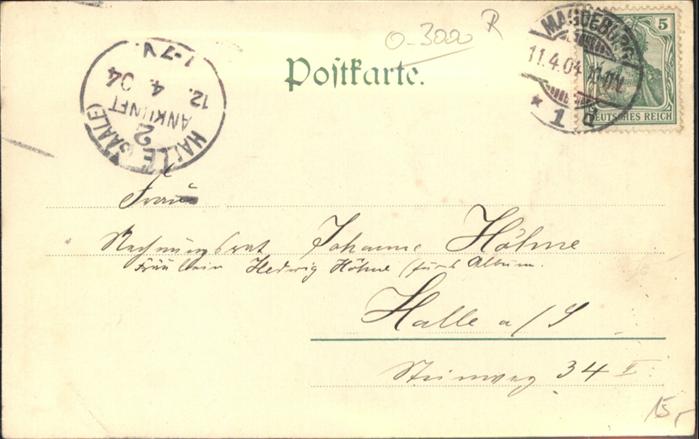 O-3000 R
MAGDEBURG
11.4.04
* 1 d
5
DEUTSCHES REICH
Postkarte.
HALLE (SAALE)
2
ANKUNFT
12. 4. 04
1-7 V.
Frau
Rechnungsrat Johanne Höhne
Fräulein Hedwig Höhne / fürs Album.
Halle a/S
Steinweg 34 II
15,-